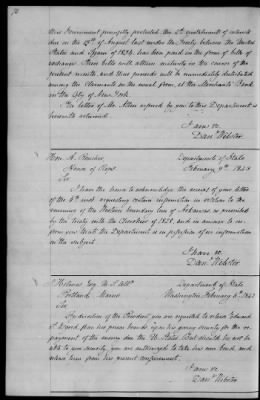 this Government promptly presented the 8th instalment of interest
due in the 13th of August last under the Treaty between the United
States and Spain of 1834, has been paid in the form of bills of
exchange. These bills will attain maturity in the course of the
present month, and their proceeds will be immediately distributed
among the Claimants in the usual form, at the Merchants' Bank
in the City of New York.
The letter of Mr. Allen referred by you to this Department is
herewith returned.
I am &c.
Danl Webster
Hon. A.
Department of State
House of Reps
February 9th 1843
Sir
I have the honor to acknowledge the receipt of your letter
of the 6th inst. requesting certain information in relation to the
running of the Western boundary line of Arkansas, as presented
by the treaty with the Cherokees of 1828, and in answer to in-
form you that the Department is in possession of no information
on the subject.
I have &c.
Danl Webster
J. Holmes Esq. U.S. Atty
Department of State
Portland Maine
Washington, February 6th 1843
Sir
By direction of the President you are requested to release Edward
S. upon his personal bonds upon his giving security for the re-
payment of the money due the U. States. But should he not be
able to give security, you are authorized to take his own bond and
release him from his present imprisonment.
I am &c.
Danl Webster